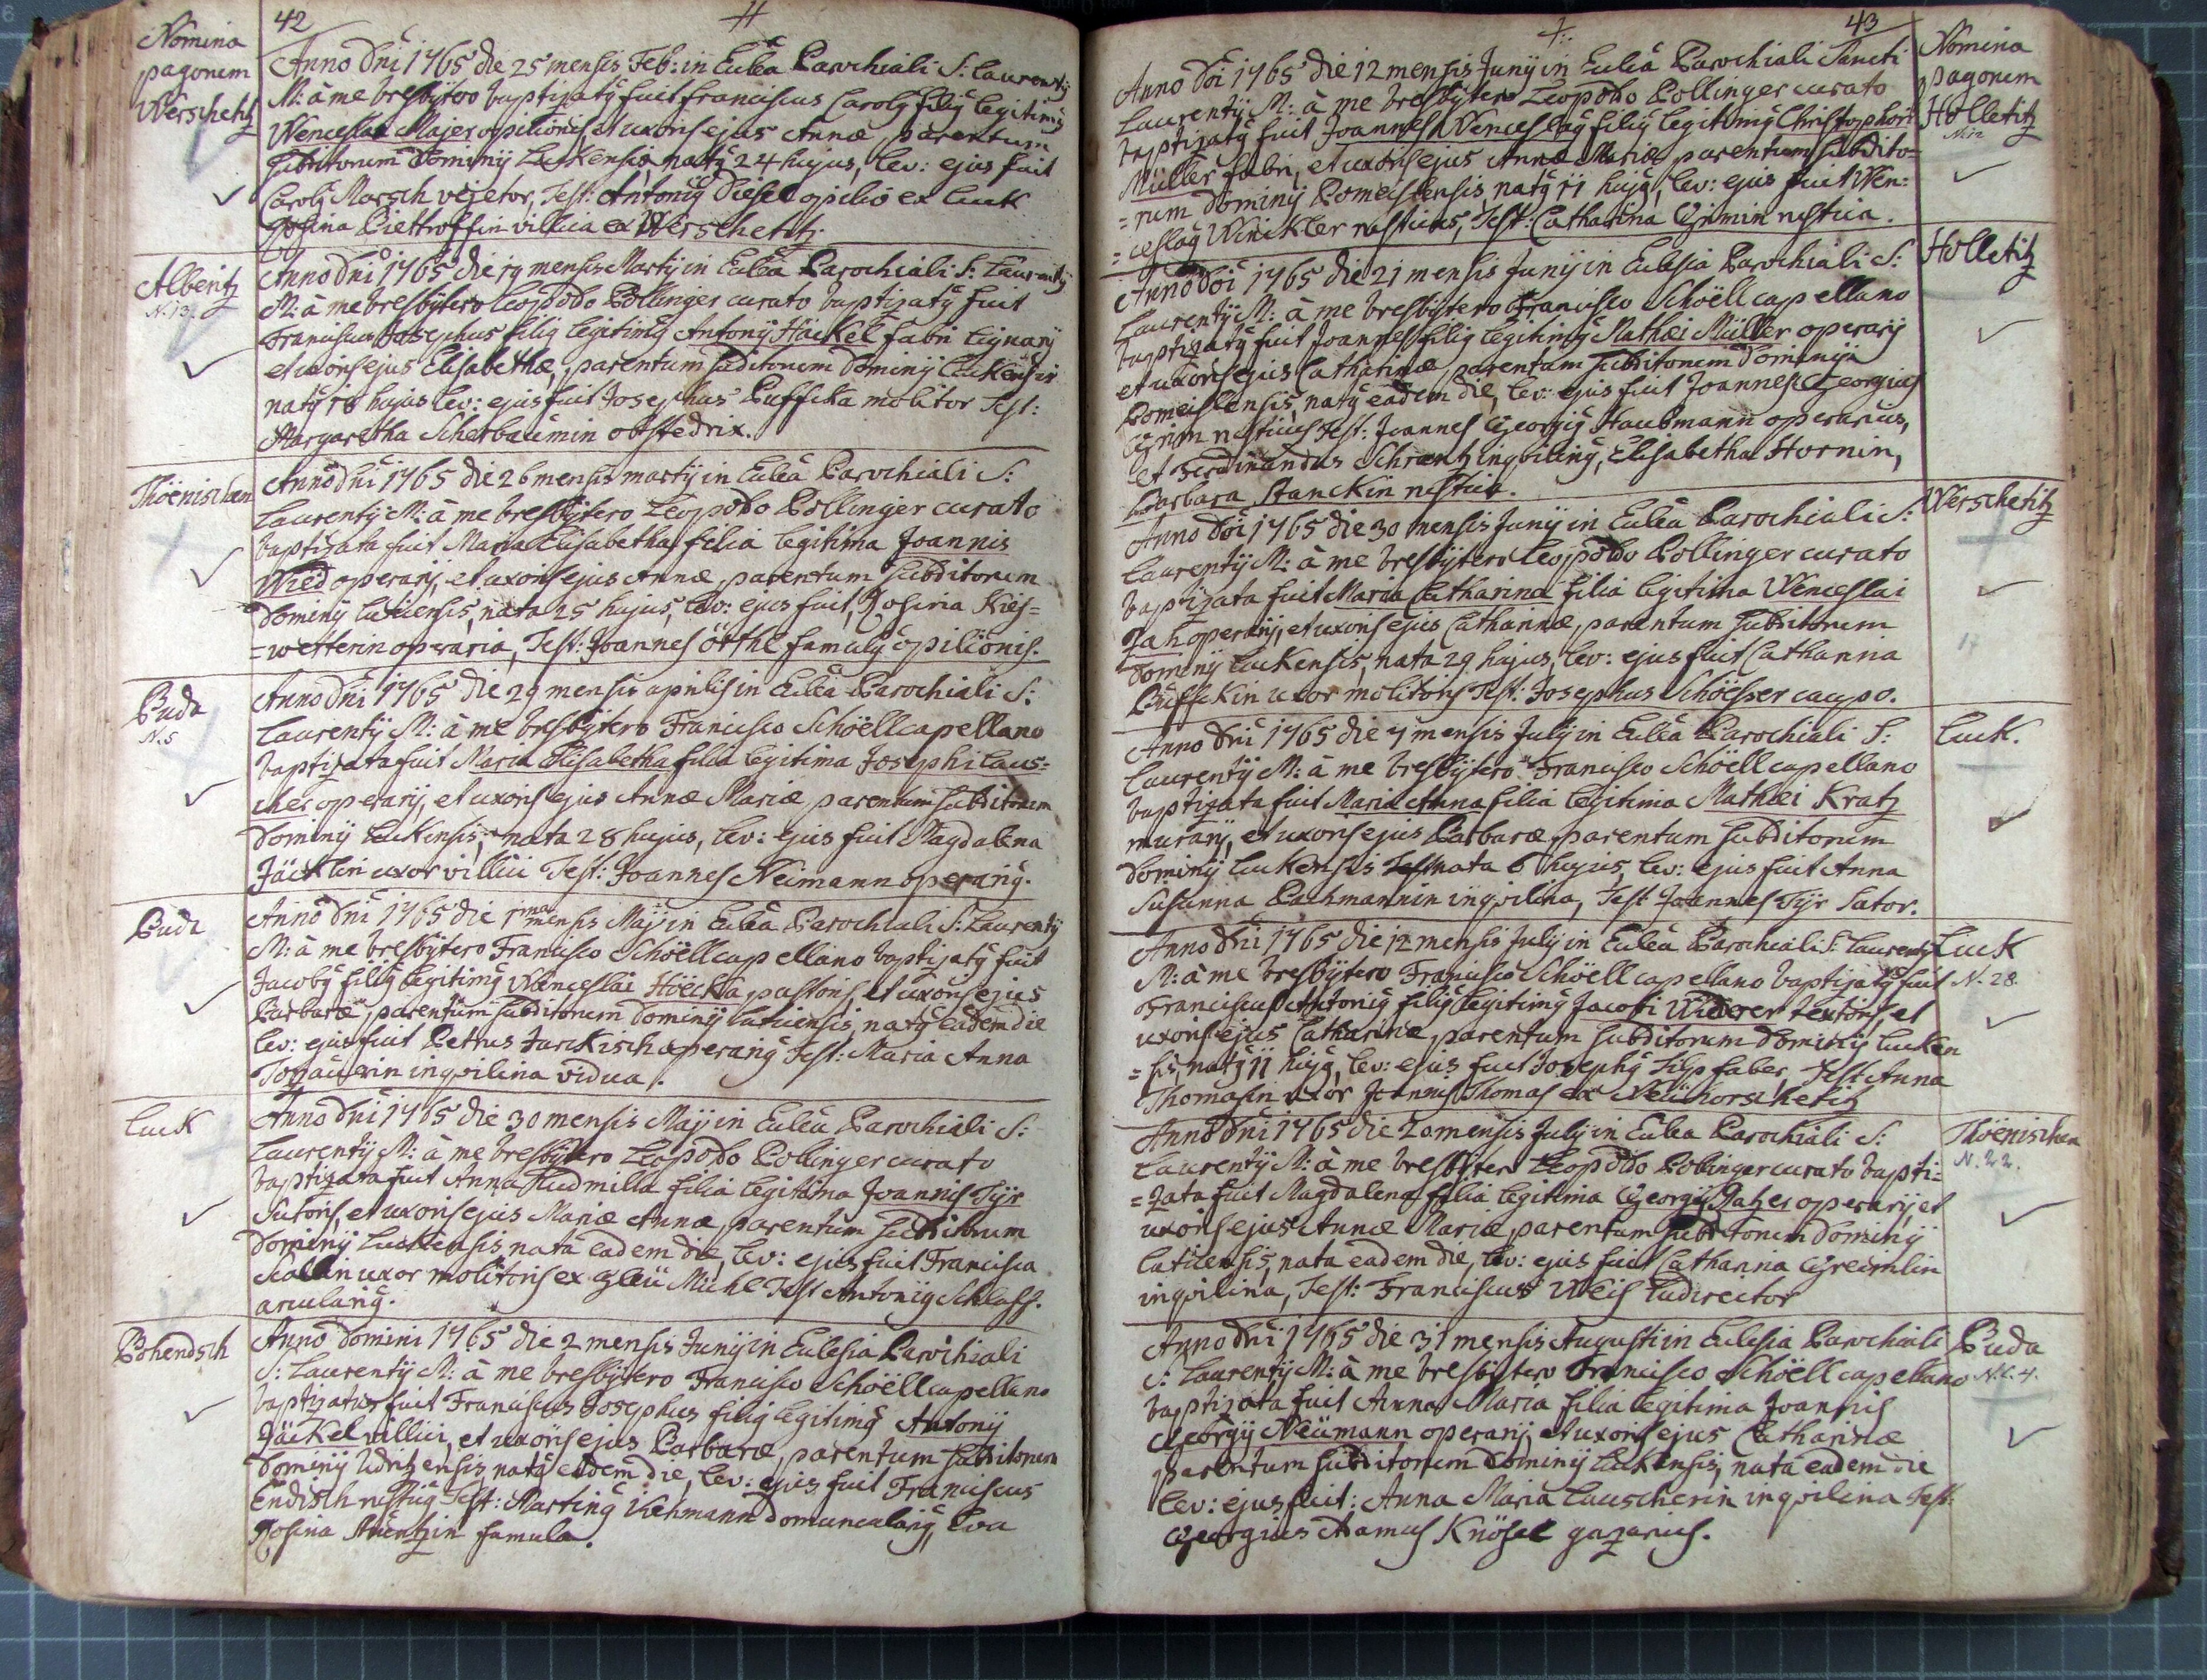 42
Nomina
pagorum
Werschetitz
Anno Dni 1765 die 25 mensis Feb: in Eccle͠a Parochiali S: Laurentÿ
M: à me bresbÿtero baptizatꝰ fuit Franciscus Carolꝰ filiꝰ legitimꝰ
Wenceslai Majer opilionis et uxoris ejus Annæ, parentum
subditorum Dominÿ Luckensis, natꝰ 24 hujus, lev: ejus fuit
Carolꝰ Marsch vietor, Test: Antoniꝰ Diesel opilio ex Luck
Rosina Piettroffin villica ex Werschetitz.
Albentz
N. 13.
Anno Dni 1765 die 19 mensis Martÿ in Eccle͠a Parochiali S: Laurentÿ
M: à me bresbÿtero Leopoldo Pollinger curato baptizatꝰ fuit
Franciscus Josephus filiꝰ legitimꝰ Antonÿ Häckel fabri lignarÿ
et uxoris ejus Elisabethæ, parentum subditorum Dominÿ Luckensis
natꝰ 18 hujus lev: ejus fuit Josephus Puffcka molitor Test:
Margaretha Scherbaumin obstedrix.
Thöenischen
Anno dni 1765 die 26 mensis martÿ in Eccle͠a Parochiali S:
Laurentÿ M: à me bresbÿtero Leopodo Pollinger curato
baptizata fuit Maria Elisabetha filia legitima Joannis
Wied operarÿ, et uxoris ejus Annæ, parentum subditorum
Dominÿ Luticensis, nata 25 hujus, lev: ejus fuit, Rosina Kies=
=wetterin operaria, Test: Joannes Örthl famulꝰ opilionis.
Buda
N. 5
Anno Dni 1765 die 29 mensis aprilis in Eccle͠a Parochiali S:
Laurentÿ M: à me bresbÿtero Francisco Schöell capellano
baptizata fuit Maria Elisabetha filia legitima Josephi Laus=
cher operarÿ, et uxoris ejus Annæ Mariæ, parentum subditorum
Dominÿ Luckensis, nata 28 hujus, lev: ejus fuit Magdalena
Jäcklin uxor villici Test: Joannes Neimann operariꝰ.
Buda
Anno Dni 1765 die 1ma mensis Maÿ in Eccle͠a Parochiali S: Laurentÿ
M: à me bresbÿtero Francisco Schöell capellano baptizatꝰ fuit
Jacobꝰ filiꝰ legitimꝰ Wenceslai Höecka pastoris, et uxoris ejus
Barbaræ, parentum subditorum Dominÿ Luticensis, natꝰ eadem die
lev: ejus fuit Petrus Jurckisch operariꝰ Test: Maria Anna
Topauerin inqvilina vidua.
Luck
Anno Dni 1765 die 30 mensis Maÿ in Eccle͠a Parochiali S:
Laurentÿ M: à me bresbÿtero Leopodo Pollinger curato
baptizata fuit Anna Ludmilla filia legitima Joannis Tÿr
Sutoris, et uxoris ejus Mariæ Annæ, parentum subditorum
Dominÿ Luckensis nata eadem die, lev: ejus fuit Francisca
uxor molitoris ex Neu Mühl Test Antoniꝰ Schlass.
arculariꝰ.
Pohendsch
Anno Domini 1765 die 2 mensis Junÿ in Ecclesia Parochiali
S: Laurentÿ M: à me bresbÿtero Francisco Schöell capellano
baptizatus fuit Franciscus Josephus filiꝰ legitimꝰ Antonÿ
Jäckel villici, et uxoris ejus Barbaræ, parentum subditorum
Dominÿ Udritzensis, natꝰ eadem die, lev: ejus fuit Franciscus
Endisch rusticꝰ Test: Martinꝰ Viehmann domunculariꝰ, Eva
Rosina Stüntzin famula.
43
Nomina
pagorum
Holletitz
Anno Doi 1765 die 12 mensis Junÿ in Eccliâ Parochiali Sancti
Laurentÿ M: à me bresbÿtero Leopodo Pollinger curato
baptizatꝰ fuit Joannes Wenceslaꝰ filiꝰ legitimꝰ Christophori
Müller fabri, et uxoris ejus Annæ Mariæ parentum subdito=
=rum Dominÿ Pomeislensis natꝰ 11 hujꝰ, lev: ejus fuit Wen=
=ceslaꝰ Winckler rusticus, Test: Catharina Grimin rustica.
Holletitz
Anno Doi 1765 die 21 mensis Junÿ in Eclesia Parochiali S:
Laurentÿ M: à me bresbÿtero Francisco Schöell capellano
baptizatꝰ fuit Joannes filiꝰ legitimꝰ Mathei Müller operarÿ
et uxoris ejus Catharinæ, parentum subditorum Dominÿ
Pomeislensis, natꝰ eadem die, lev: ejus fuit Joannes Georgius
Grim rusticus Test: Joannes Georgiꝰ Haubmann operarius,
et Ferdinandus Schrantz inqvilinꝰ, Elisabetha Hornin,
Barbara Stanckin rustica.
Werschetitz
Anno Doi 1765 die 30 mensis Junÿ in Eccle͠a Parochiali S:
Laurentÿ M: à me bresbÿtero Leopoldo Pollinger curato
baptizata fuit Maria Catharina filia legitima Wenceslai
Zah operarÿ, et uxoris ejus Catharinæ, parentum subditorum
Dominÿ Luckensis, nata 29 hujus, lev: ejus fuit Catharina
Puffckin uxor molitoris Test: Josephus Schöesser caupo.
Luck.
Anno Dni 1765 die 7 mensis Julÿ in Eccle͠a Parochiali S:
Laurentÿ M: à me bresbÿtero Francisco Schöell capellano
baptizata fuit Maria Anna filia legitima Mathæi Kratz
murarÿ, et uxoris ejus Barbaræ parentum subditorum
Dominÿ Luckensis nata 6 hujus, lev: ejus fuit Anna
Susanna Pachmannin inqvilina, Test Joannes Tÿr Sutor.
Luck
N. 28.
Anno Dni 1765 die 12 mensis Julÿ in Eccle͠a Parochiali S: Laurentÿ
M: à me bresbÿtero Francisco Schöell capellano baptizatꝰ fuit
Franciscus Antoniꝰ filiꝰ legitimꝰ Jacobi Widerer textoris, et
uxoris ejus Catharinæ, parentum subditorum Dominÿ Lucken
=sis, natꝰ 11 hujꝰ, lev: ejus fuit Josephꝰ Filip faber, Test Anna
Thomasin uxor Joannis Thomas ex Neühorschetitz
Thöenischen
N. 22.
Anno Dni 1765 die 20 mensis Julÿ in Eccle͠a Parochiali S:
Laurentÿ M: à me bresbÿtero Leopoldo Pollinger curato bapti=
=zata fuit Magdalena filia legitima Georgÿ Patzer operarÿ, et
uxoris ejus Annæ Mariæ, parentum subditorum Dominÿ
Luticensis, nata eadem die, lev: ejus fuit Catharina Greimlin
inqvilina, Test: Franciscus Weis Ludirector
Buda
N.C. 4.
Anno Dni 1765 die 31 mensis Augusti in Eclesia Parochiali
S: Laurentÿ M: à me bresbÿtero Francisco Schöell capellano
baptizata fuit Anna Maria filia legitima Joannis
Georgÿ Neümann operarÿ, et uxoris ejus Catharinæ
parentum subditorum Dominÿ Luckensis, nata eadem die
lev: ejus fuit: Anna Maria Lauscherin inqvilina Test:
Georgius Adamus Knösel gazarius.